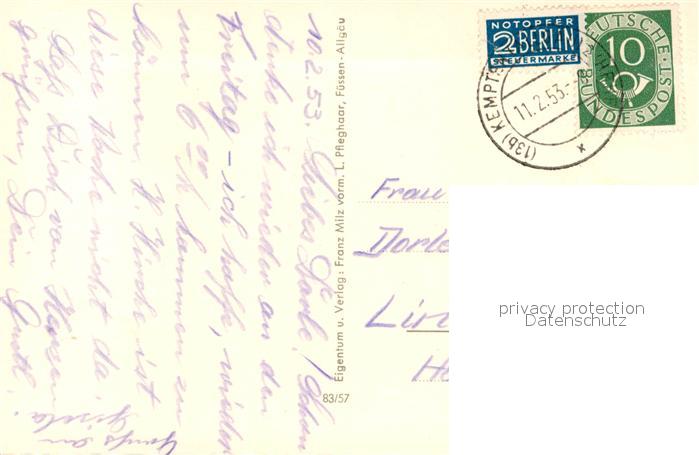 10.2.53. Liebes Dorle! Schon
denke ich wieder an den
Freitag – ich hoffe, wieder
um 6 00 h kommen zu
können. H. Hirche ist
diese Woche nicht da.
Laß Dich von Herzen
grüßen, Dein Gustl.
Gruß an
Gisela.
Eigentum u. Verlag: Franz Milz vorm. L. Pfleghaar, Füssen-Allgäu
83/57
NOTOPFER
2 BERLIN
STEUERMARKE
DEUTSCHE
10
BUNDESPOST
(13b) KEMPT
11.2.53.-
Frau
Dorle
Lin
privacy protection
Datenschutz